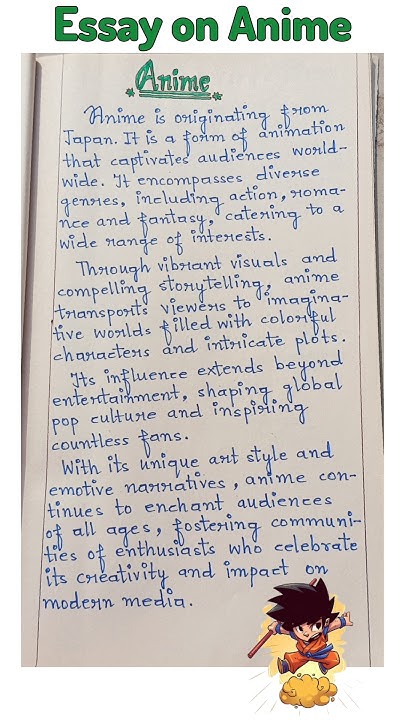 Essay on Anime
Anime
Anime is originating from
Japan. It is a form of animation
that captivates audiences world-
wide. It encompasses diverse
genres, including action, roma-
nce and fantasy, catering to a
wide range of interests.
Through vibrant visuals and
compelling storytelling, anime
transports viewers to imagina-
tive worlds filled with colorful
characters and intricate plots.
Its influence extends beyond
entertainment, shaping global
pop culture and inspiring
countless fans.
With its unique art style and
emotive narratives, anime con-
tinues to enchant audiences
of all ages, fostering communi-
ties of enthusiasts who celebrate
its creativity and impact on
modern media.